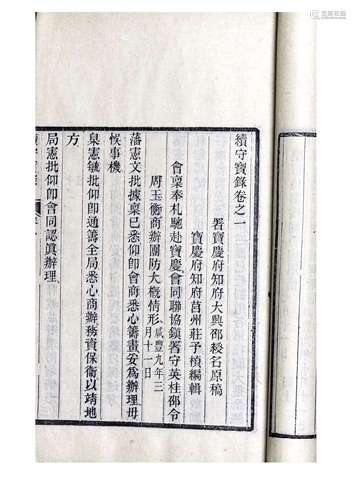 續守寶錄卷之一
署寶慶府知府大興邵綬名原稿
寶慶府知府莒州莊予楨編輯
會稟奉札馳赴寶慶會同聯協鎮署守英桂邵令
周玉衡商辦團防大概情形咸豐九年三
月十一日
藩憲文批據稟已悉仰即會商悉心籌畫妥為辦理毋
候事機
臬憲毓批仰即通籌全局悉心商辦務資保衛以靖地
方
局憲批仰即會同認眞辦理